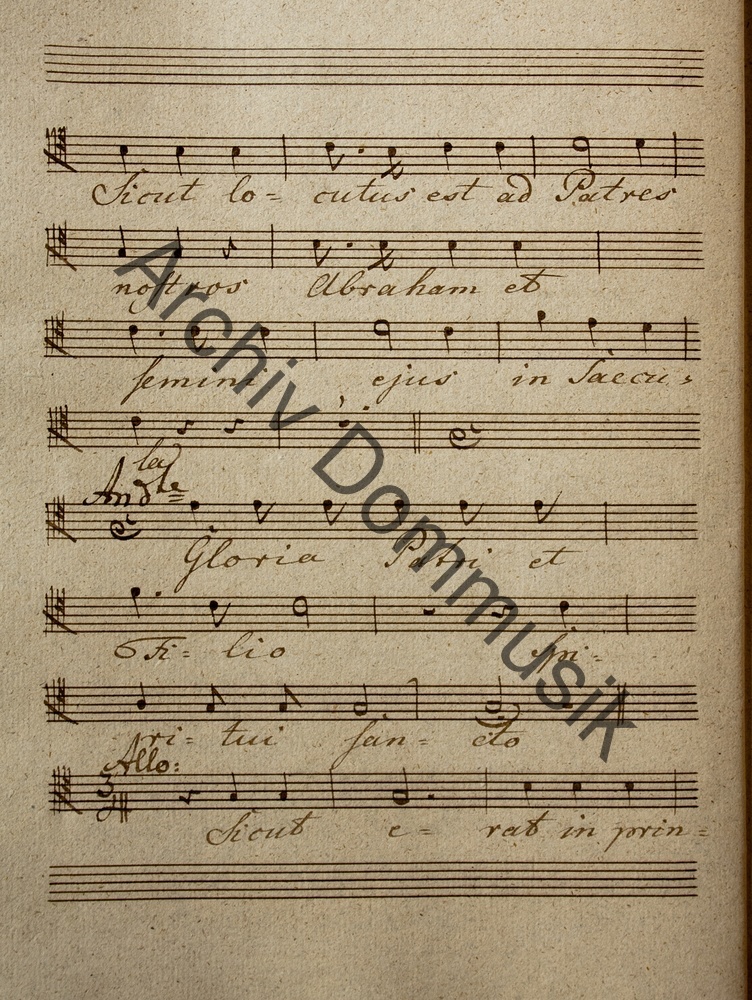 Sicut lo= cutus est ad Patres
nostros Abraham et
semini ejus in Saecu=
la
And:te
Gloria Patri et
Fi= lio Spi=
ri= tui San= cto
Allo:
3
Sicut e= rat in prin=
Archiv Dommusik